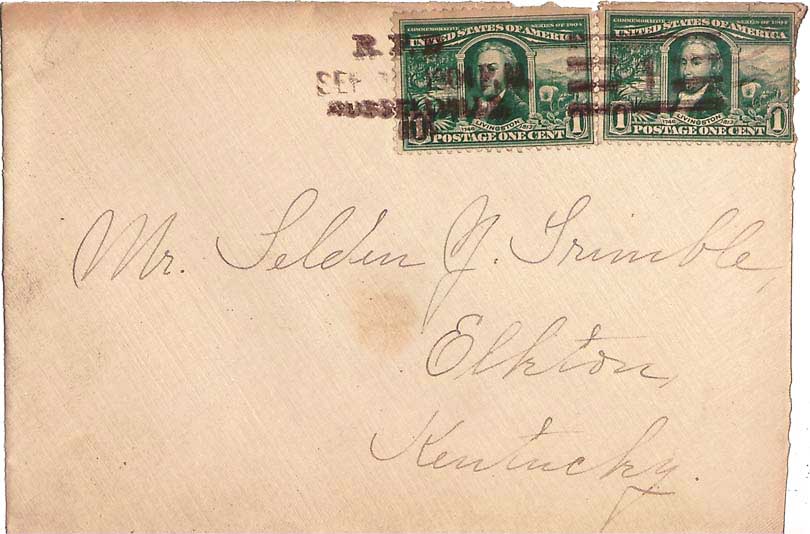 COMMEMORATIVE SERIES OF 1904
UNITED STATES OF AMERICA
1 LIVINGSTON 1
1746 1813
POSTAGE ONE CENT
COMMEMORATIVE SERIES OF 1904
UNITED STATES OF AMERICA
1 LIVINGSTON 1
1746 1813
POSTAGE ONE CENT
SEP
1
Mr. Selden Y. Trimble,
Elkton,
Kentucky.